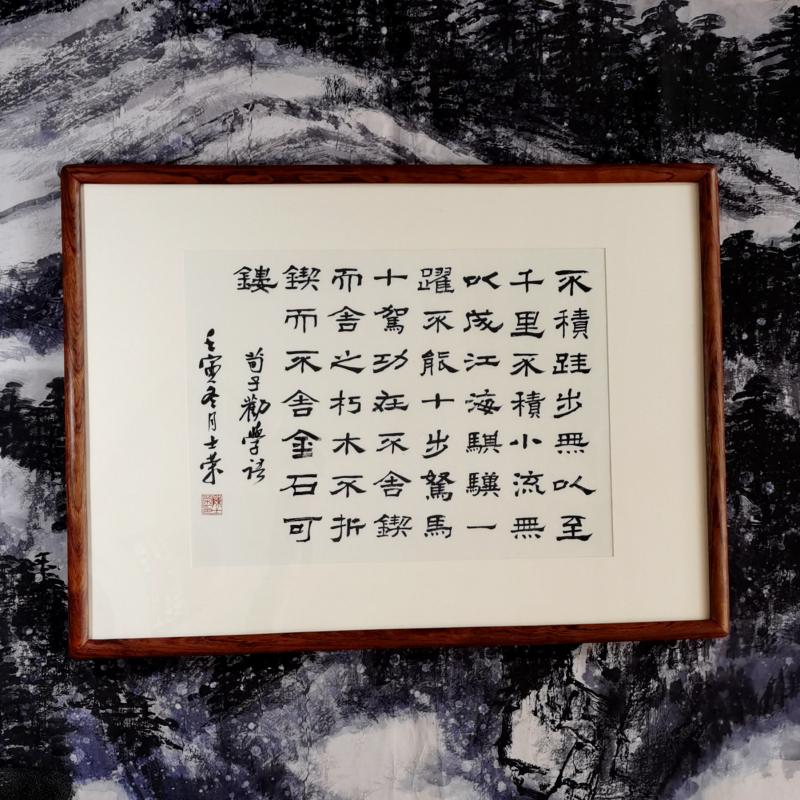 不積跬步無以至
千里不積小流無
以成江海騏驥一
躍不能十步駑馬
十駕功在不舍鍥
而舍之朽木不折
鍥而不舍金石可
鏤
荀子勸學語
壬寅冬月士榮